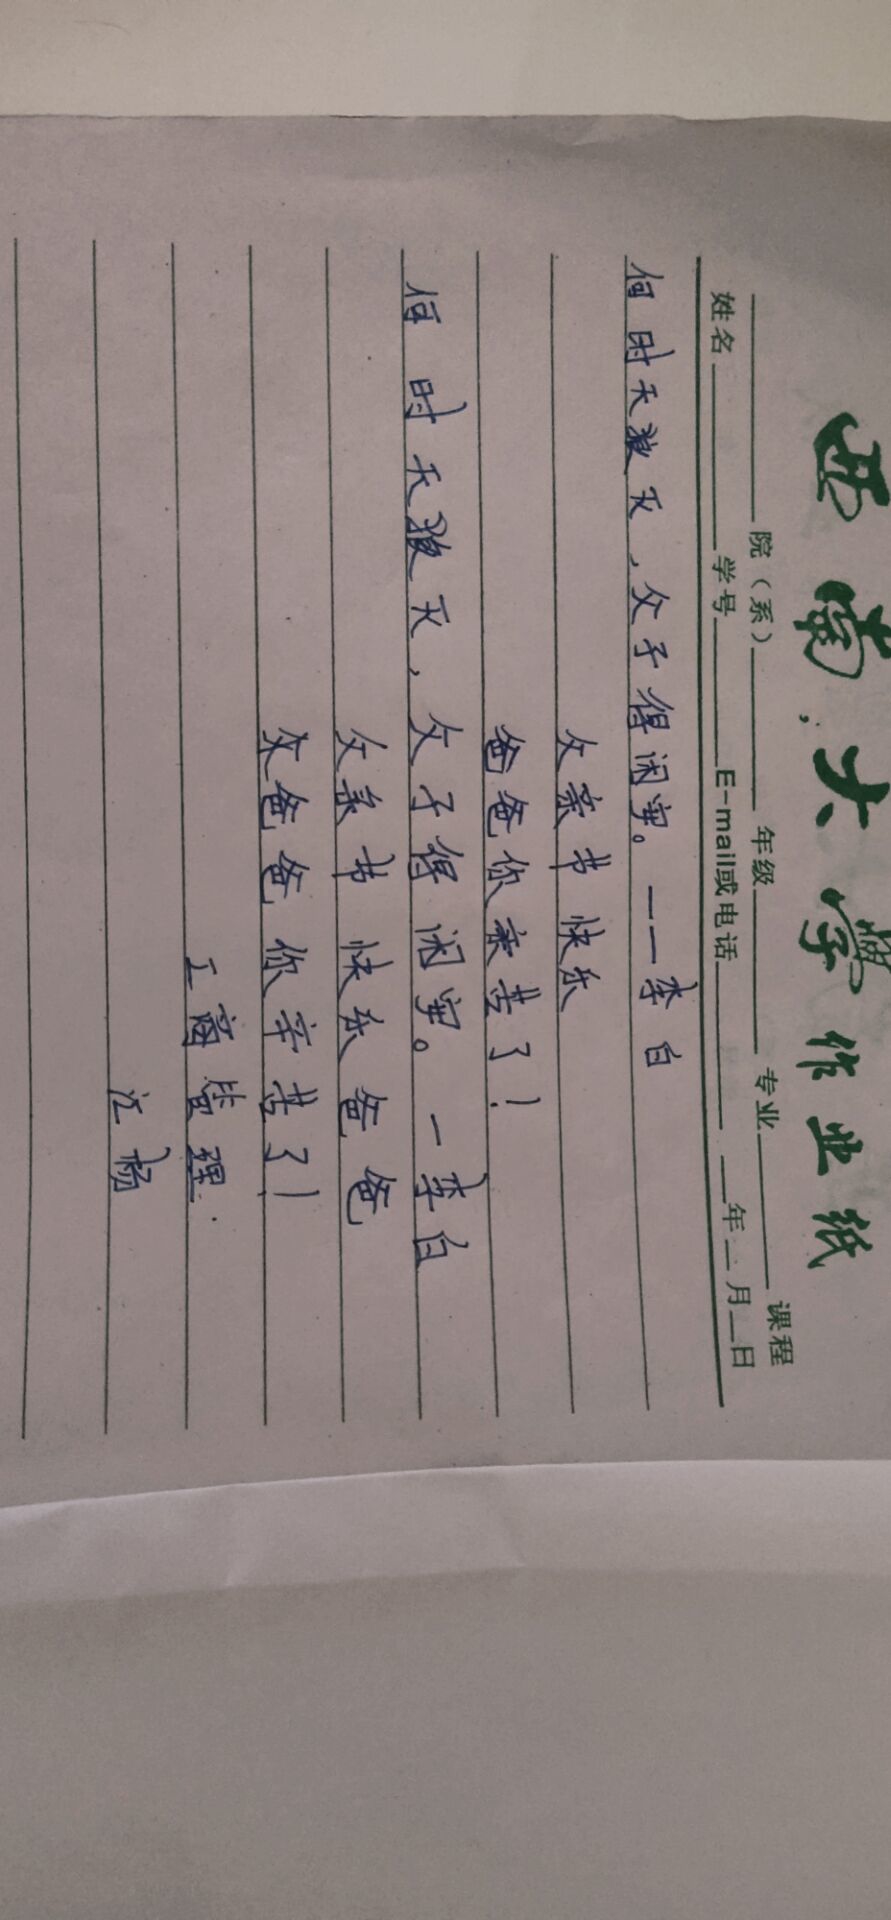 西南大学作业纸
院（系） 年级 专业 课程
姓名 学号 E-mail或电话 年 月 日
何时天狼灭，父子得闲安。——李白
父亲节快乐
爸爸你辛苦了！
何时天狼灭，父子得闲安。—李白
父亲节快乐爸爸
爸爸你辛苦了！
工商管理.
江杨